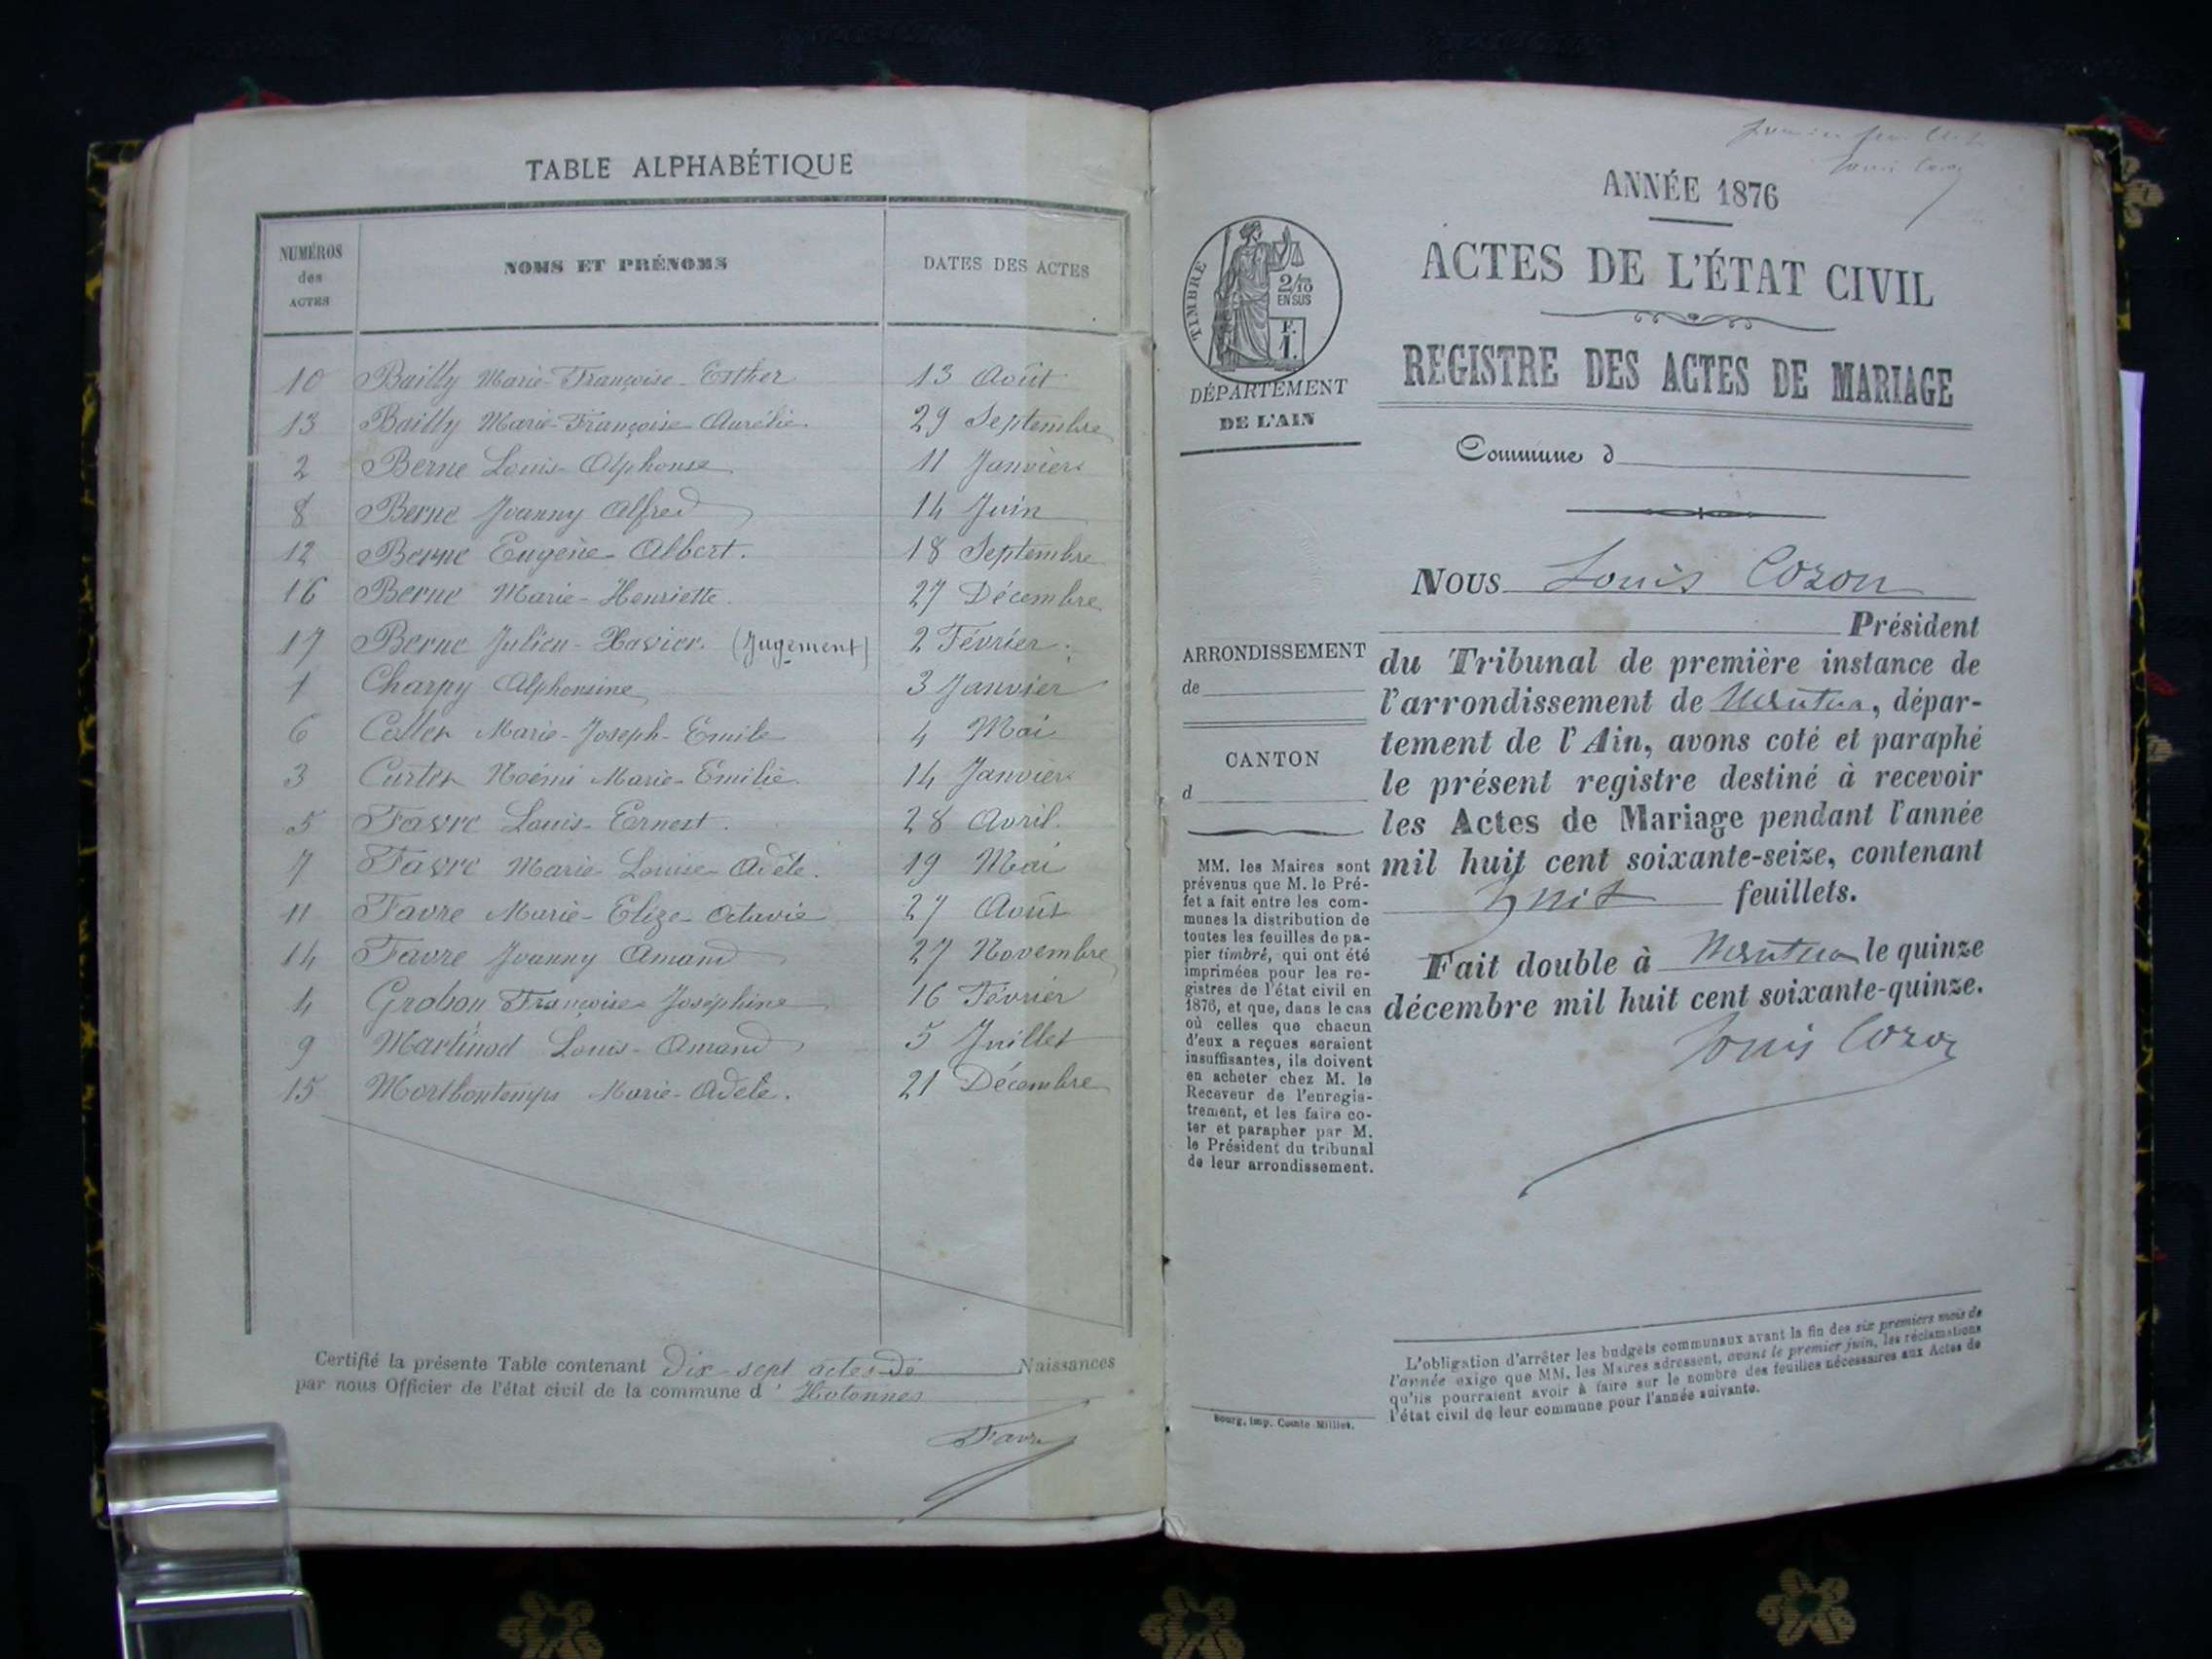 TABLE ALPHABÉTIQUE
NUMÉROS
des
ACTES
NOMS ET PRÉNOMS
DATES DES ACTES
10 Bailly Marie-Françoise-Esther 13 Août
13 Bailly Marie-Françoise Aurélie. 29 Septembre
2 Berne Louis-Alphonse 11 Janvier
8 Berne Joanny Alfred 14 Juin
12 Berne Eugène-Albert. 18 Septembre
16 Berne Marie-Henriette. 27 Décembre
17 Berne Julien-Xavier. (Jugement) 2 Février.
1 Charpy Alphonsine 3 Janvier
6 Marie-Joseph-Emile 4 Mai
3 Noémi Marie-Emilie. 14 Janvier
5 Favre Louis-Ernest. 28 Avril.
7 Favre Marie Louise Adèle. 19 Mai
11 Favre Marie-Elize-Octavie 27 Août
14 Favre Joanny Amand 27 Novembre
4 Grobon Françoise Joséphine 16 Février
9 Martinod Louis-Amand 5 Juillet
15 Mortbontemps Marie-Adèle. 21 Décembre
Certifié la présente Table contenant dix-sept actes de Naissances
par nous Officier de l'état civil de la commune d'Hotonnes
Favre
Louis Cozon
ANNÉE 1876
ACTES DE L'ÉTAT CIVIL
TIMBRE
2/10
EN SUS
F.
1.
REGISTRE DES ACTES DE MARIAGE
DÉPARTEMENT
DE L'AIN
Commune d
NOUS Louis Cozon
Président
du Tribunal de première instance de
l'arrondissement de Nantua, dépar-
tement de l'Ain, avons coté et paraphé
le présent registre destiné à recevoir
les Actes de Mariage pendant l'année
mil huit cent soixante-seize, contenant
huit feuillets.
Fait double à Nantua le quinze
décembre mil huit cent soixante-quinze.
Louis Cozon
ARRONDISSEMENT
de
CANTON
d
MM. les Maires sont
prévenus que M. le Pré-
fet a fait entre les com-
munes la distribution de
toutes les feuilles de pa-
pier timbré, qui ont été
imprimées pour les re-
gistres de l'état civil en
1876, et que, dans le cas
où celles que chacun
d'eux a reçues seraient
insuffisantes, ils doivent
en acheter chez M. le
Receveur de l'enregis-
trement, et les faire co-
ter et parapher par M.
le Président du tribunal
de leur arrondissement.
L'obligation d'arrêter les budgets communaux avant la fin des six premiers mois de
l'année exige que MM. les Maires adressent, avant le premier juin, les réclamations
qu'ils pourraient avoir à faire sur le nombre des feuilles nécessaires aux Actes de
l'état civil de leur commune pour l'année suivante.
Bourg, imp. Comte-Milliet.